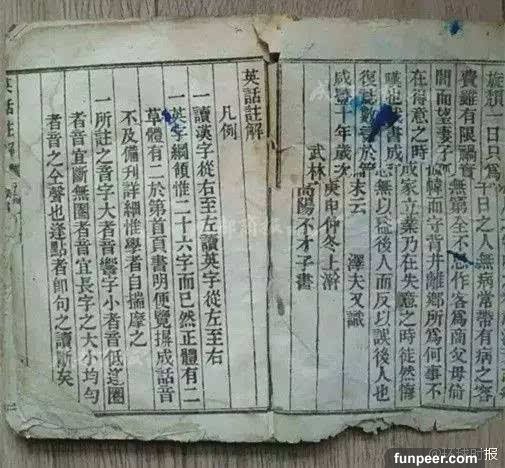 旋類一日只爲午日之人無病常帶有病之容
費雖有限禍害無窮全不忍作客爲商父母倚
閭而望妻子幃而守背井離鄉所爲何事不
在得意之時成家立業乃在失意之時徒然悔
嘆也茲書成無以益後人而反以誤後人也
復數言於末云 澤夫又識
咸豐十年歲次庚申仲冬上澣
武林高陽不才子書
英話註解
凡例
一讀漢字從右至左讀英字從左至右
一英字綱領惟二十六字而已然正體有二
草體有二於第首頁書明便覽揖成話音
不及備刊詳細惟學者自揣摩之
一所註之音字大者音響字小者音低逢圈
者音宜斷無圈者音宜長字之大小均勻
者音之全聲也逢點者即句之讀斷矣
英話註解
funpeer.com